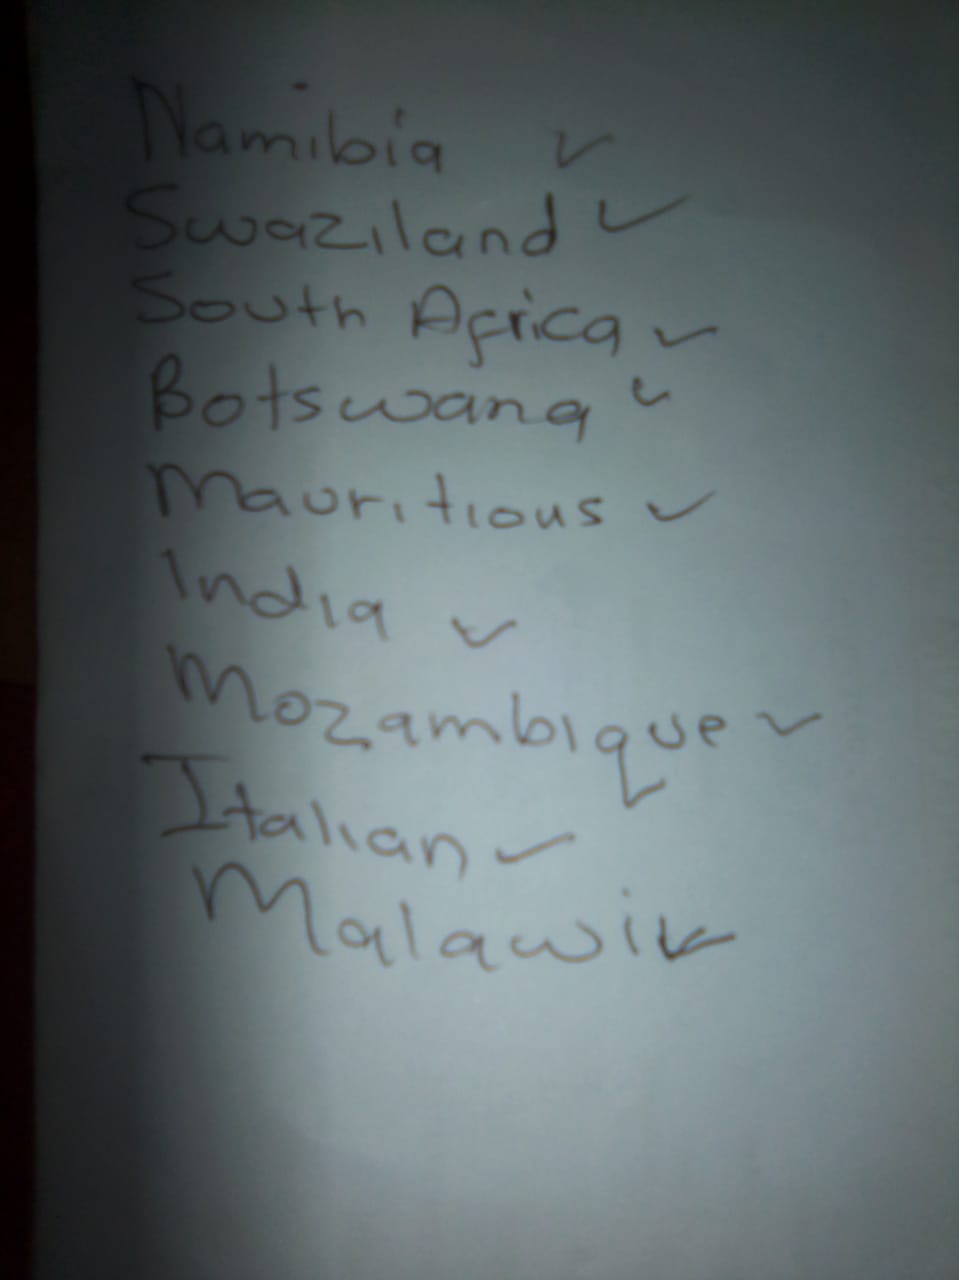 Namibia ✓
Swaziland ✓
South Africa ✓
Botswana ✓
Mauritious ✓
India ✓
Mozambique ✓
Italian ✓
Malawi ✓